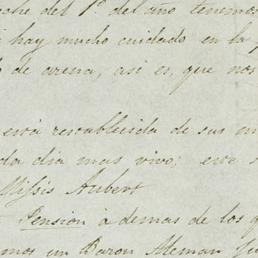 oche del 1º del año tenemos
hay mucho cuidado en la p
de arena, asi es, que nos
está restablecida de sus m
da dia mas vivo; este s
Missis Aubert
Pension à demas de los q
mos un Baron Aleman